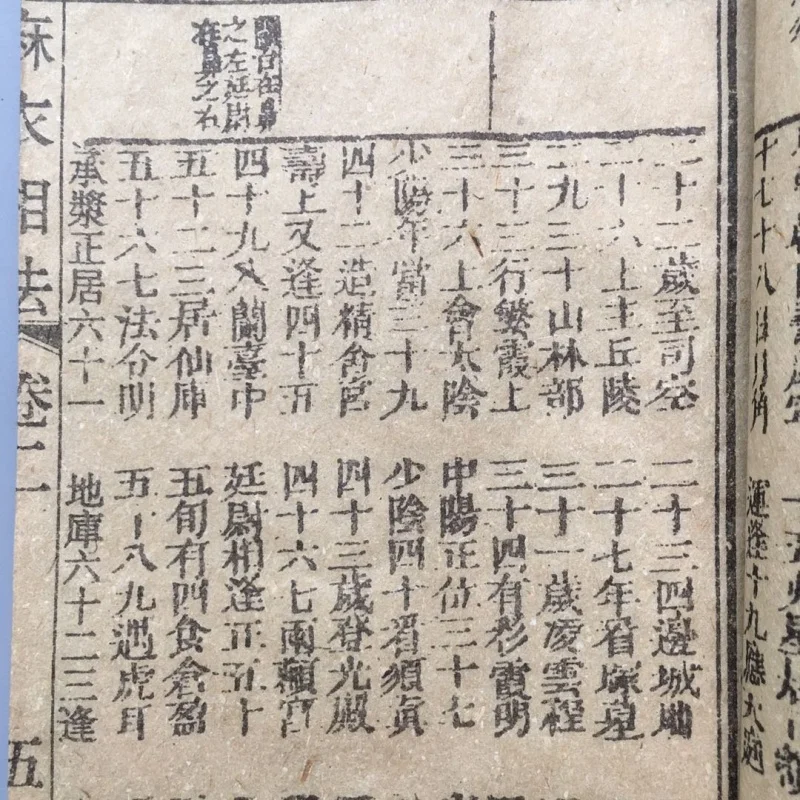 十七十八日月角　運逢十九應天庭
二十二歲至司空　二十三四邊城地
二十六上主丘陵　二十七年看塚墓
二九三十山林部　三十一歲凌雲程
三十三行繁霞上　三十四有彩霞明
三十六上會太陰　中陽正位三十七
少陽年當三十九　少陰四十看須真
四十二造精舍宮　四十三歲登光殿
蘭台在鼻
之左廷尉
在鼻之右
壽上又逢四十五　四十六七兩顴宮
四十九入蘭臺中　廷尉相逢正五十
五十二三居仙庫　五旬有四食倉盈
五十六七法令明　五十八九遇虎耳
承漿正居六十一　地庫六十二三逢
麻衣相法　卷二　五